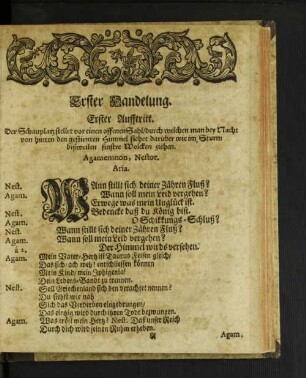 Erster Handelung.
Erster Aufftritt.
Der Schauplatz stellet vor einen offenen Sahl/durch welchen man bey Nacht
von hinten den gestirnten Himmel siehet darüber wie im Sturm
bißweilen finstre Wolcken ziehen.
Agamemnon, Nestor.
Aria.
Nest. WAnn stillt sich deiner Zähren Fluß?
Agam. Wann soll mein Leid vergehen?
Erwege was mein Unglück ist.
Nest. Bedencke daß du König bist.
Agam. O Schickungs-Schluß?
Nest. Wann stillt sich deiner Zähren Fluß?
Agam. Wann soll mein Leid vergehen?
à 2. Der Himmel wirds versehen.
Agam. Mein Vater-Hertz ist Taurus Felsen gleich/
Das sich/ach weh! entschliessen können
Mein Kind/mein Iphigenia!
Dein Lebens-Bande zu trennen.
Nest. Soll Griechenland sich den verachtet nennen?
Du siehst wie nah
Sich das Verderben eingedrungen/
Das eintzig wird durch ihren Todt bezwungen.
Agam. Was tröst mein Hertz? Nest. Das unser Reich
Durch dich wird seinen Ruhm erheben.
Agam.